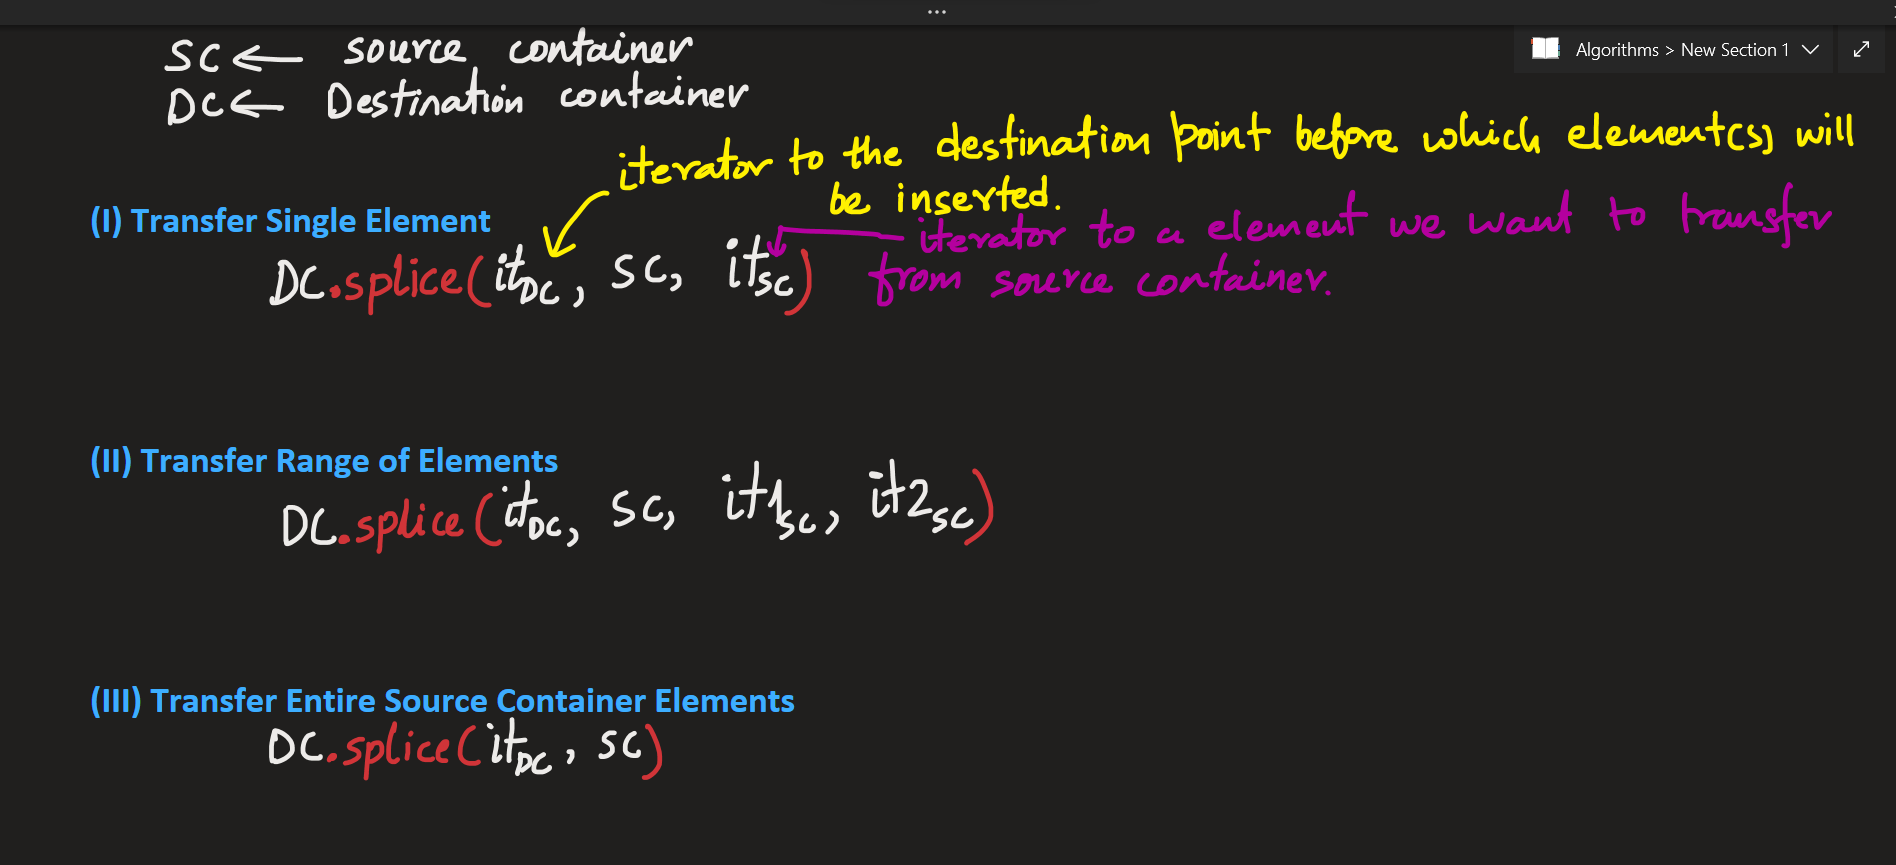 ...
Algorithms > New Section 1
SC ← source container
DC ← Destination container
iterator to the destination point before which element(s) will
be inserted.
(I) Transfer Single Element
iterator to a element we want to transfer
from source container.
DC.splice(itDC, SC, itSC)
(II) Transfer Range of Elements
DC.splice(itDC, SC, it1SC, it2SC)
(III) Transfer Entire Source Container Elements
DC.splice(itDC, SC)